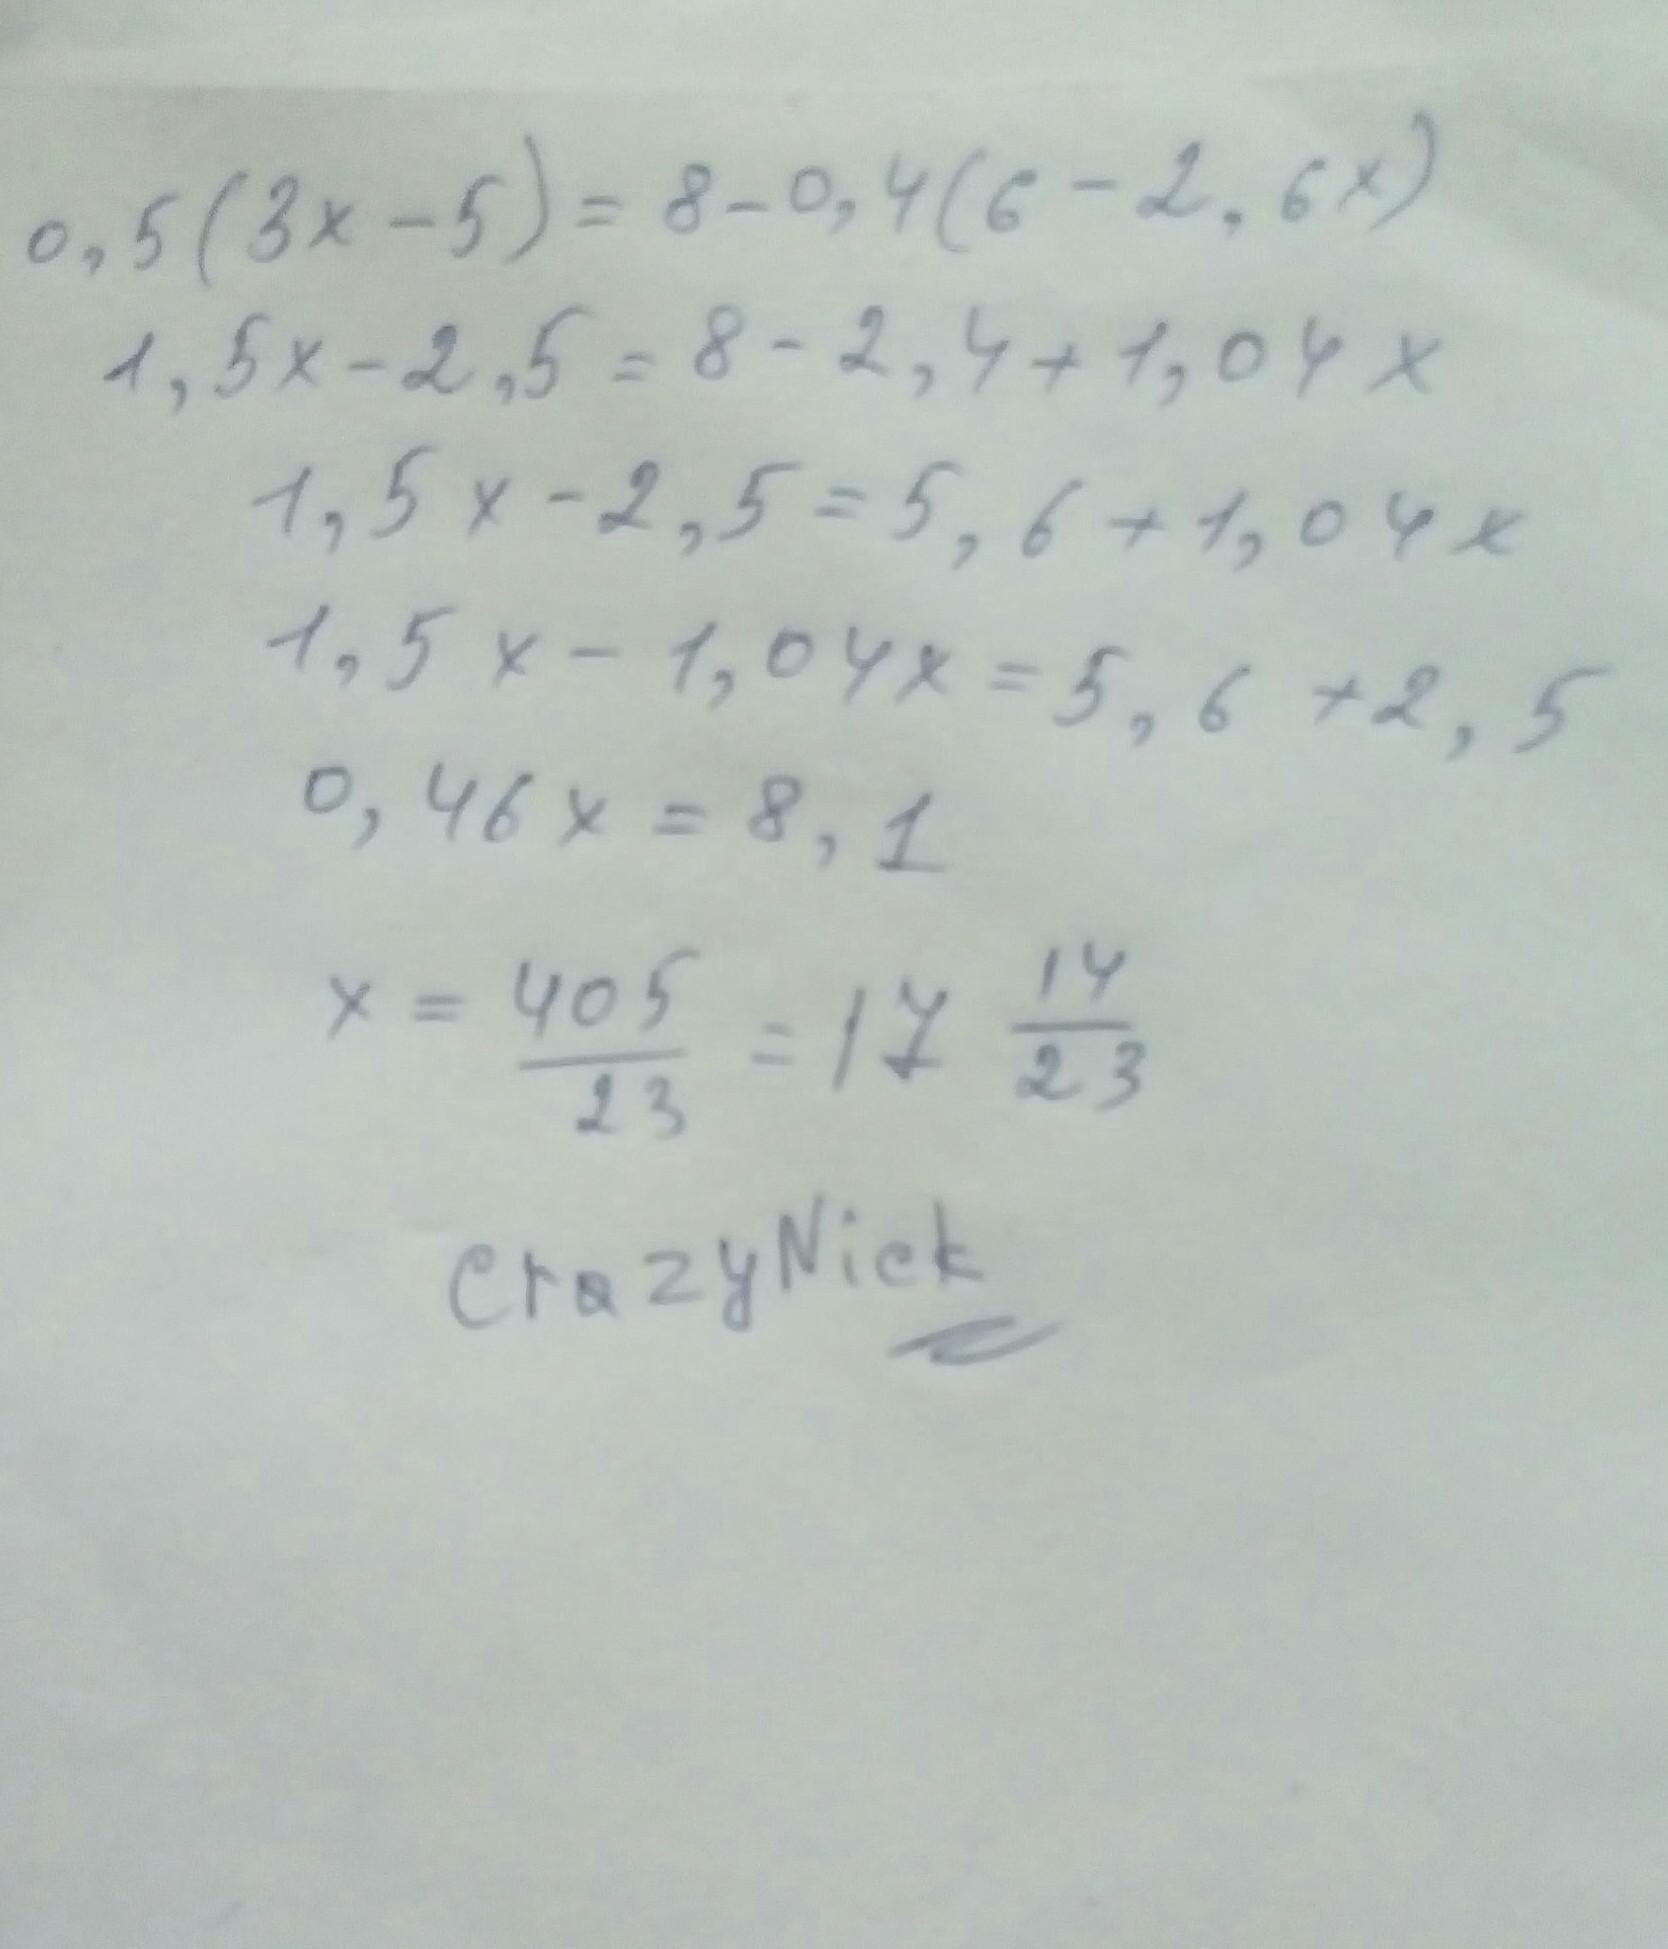 0,5(3x-5)=8-0,4(6-2,6x)
1,5x-2,5=8-2,4+1,04x
1,5x-2,5=5,6+1,04x
1,5x-1,04x=5,6+2,5
0,46x=8,1
x=405/23=17 14/23
CrazyNick